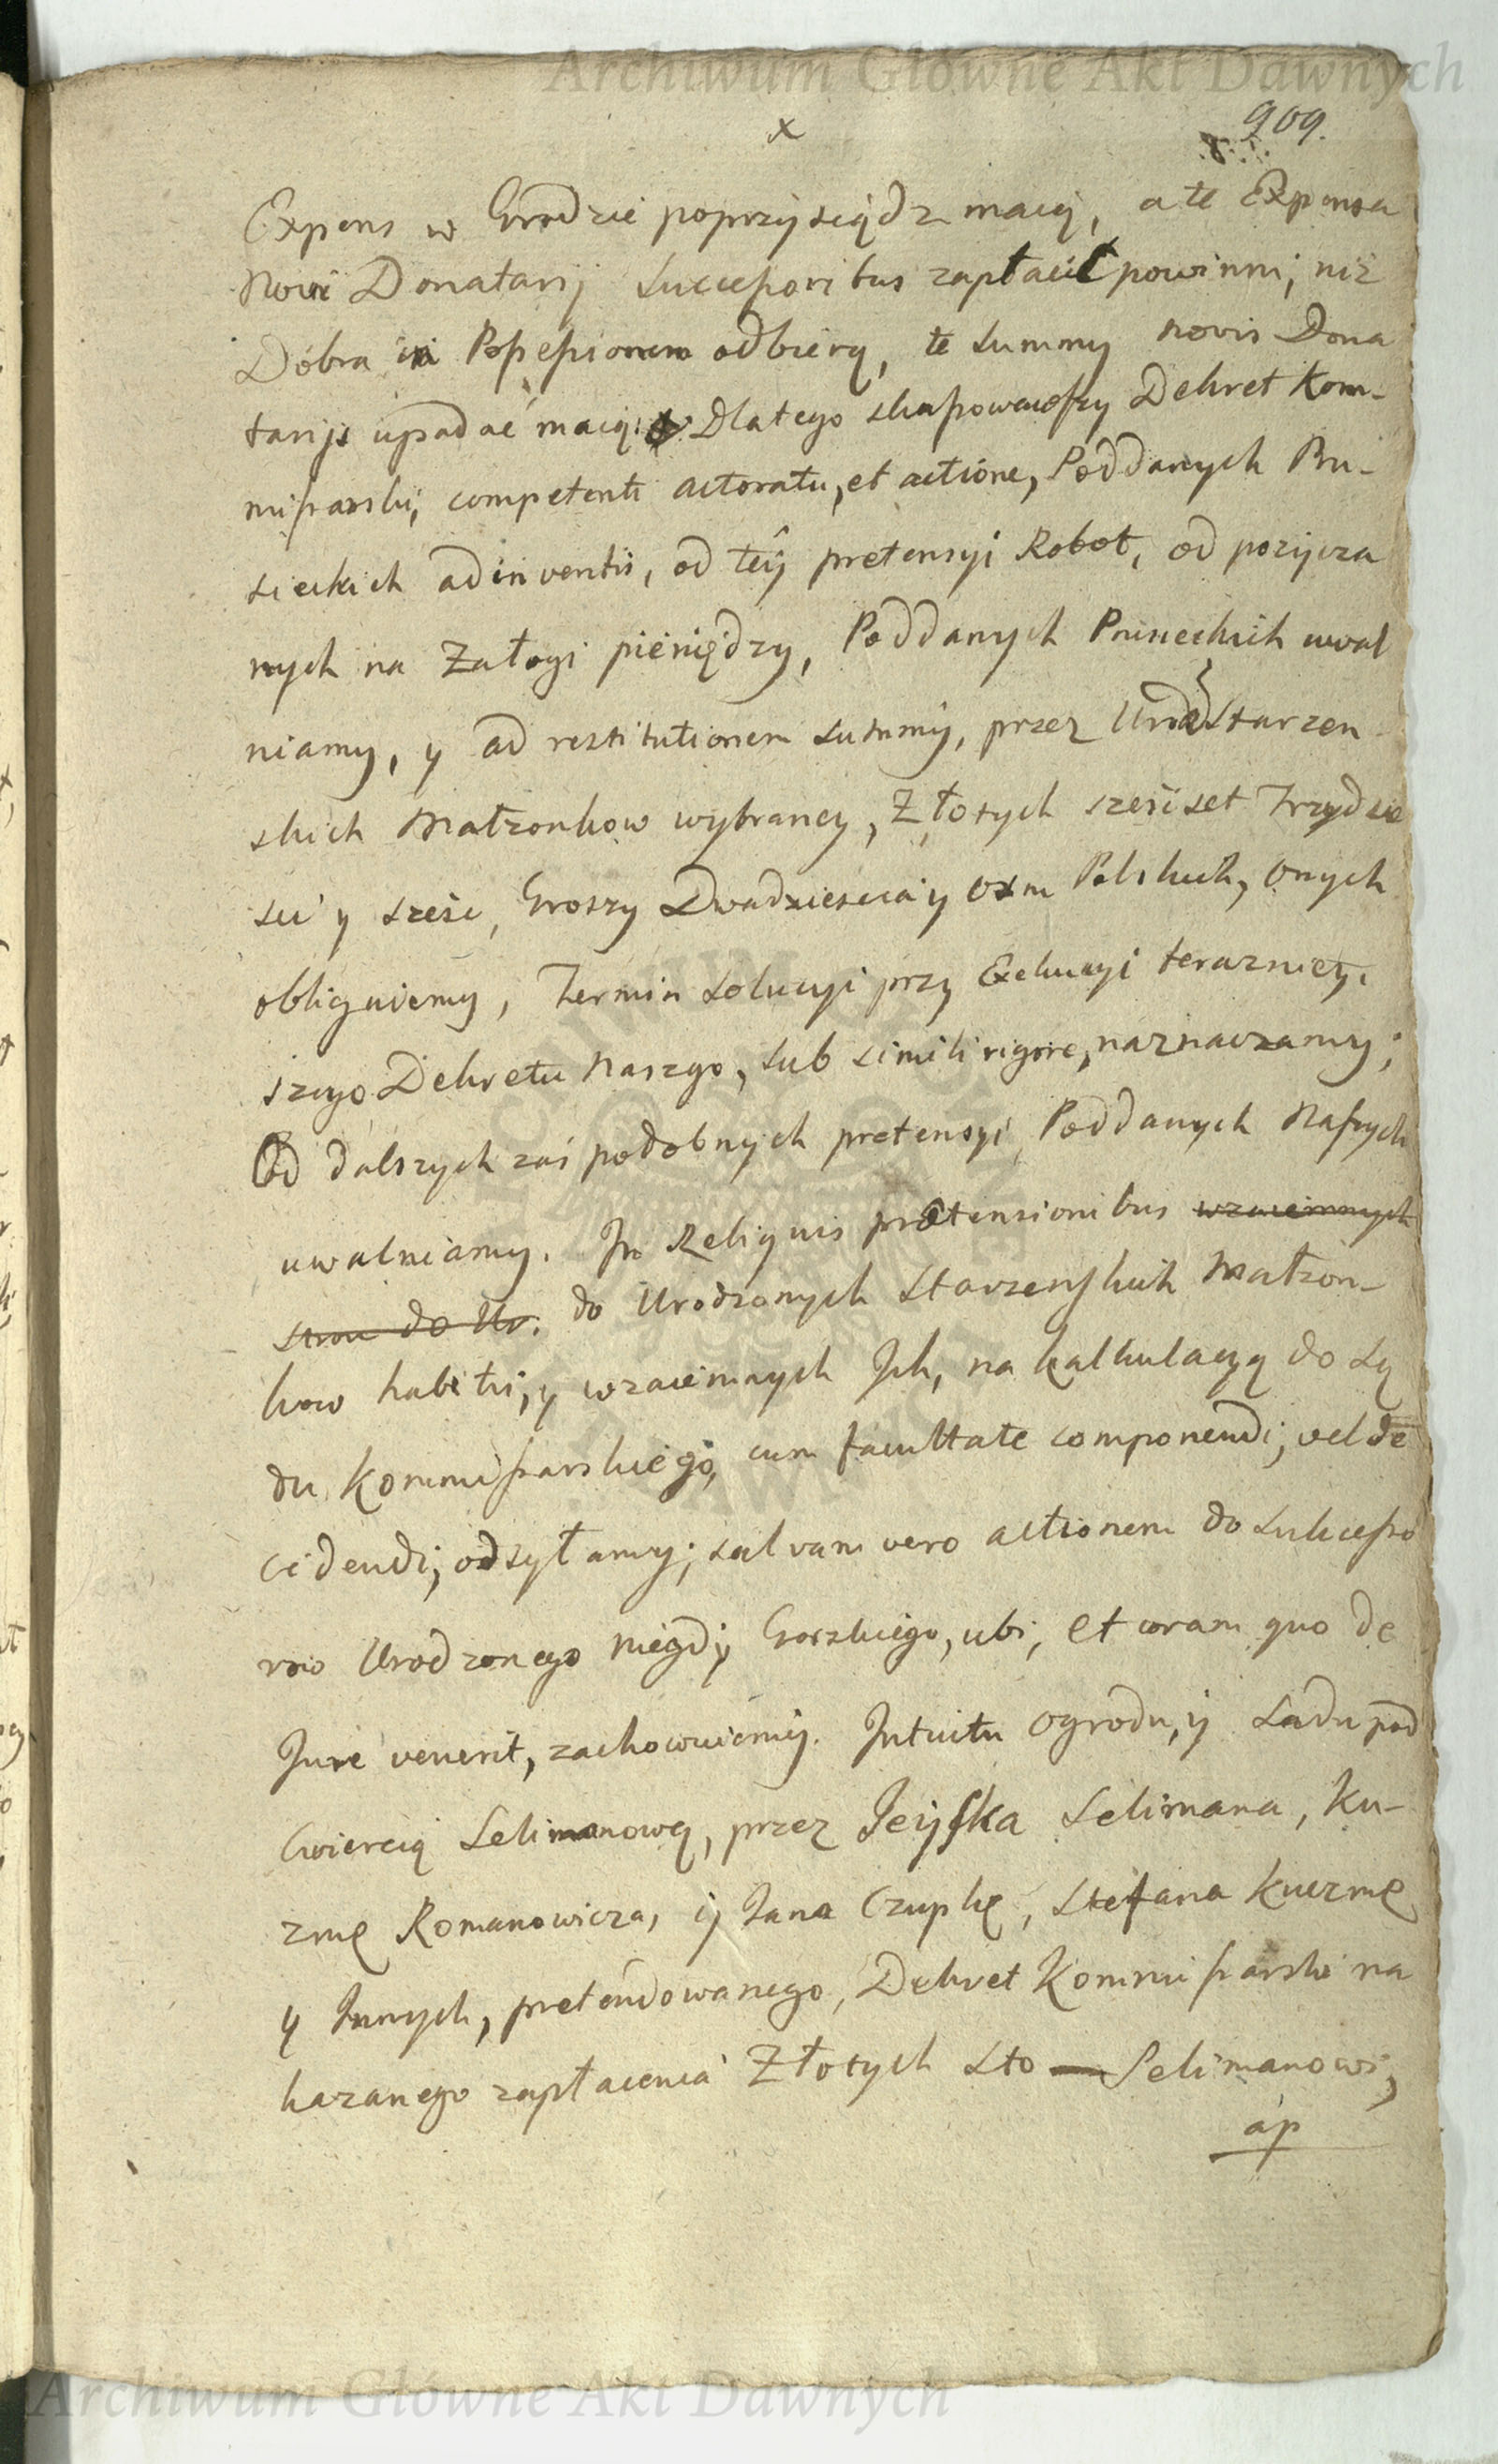 Archiwum Główne Akt Dawnych
x
909.
Expens w Grodzie poprzysiądz maią, a te Expensa
Nowi Donatarij Successoribus zapłacić powinni, niż
Dobra in Possessionem odbierą, te summy novis Dona
tarijs upadać maią. Dlatego skassowawszy Dekret Kom-
missarski, competenti actoratu, et actione, Poddanych Pru-
sieckich adinventis, od teÿ pretensyi Robot, od pozycza
nych na Załogi pieniędzy, Poddanych Prusieckich uwal
niamy, y ad restitutionem summy, przez Urodz Starzen
skich Małzonkow wybraney, Złotych sześćset Trzydzie
sci y sześc, Groszy Dwadziescia y osm Polskich, onych
obliguiemy, Termin solucyi przy Exekucyi terazniey,
szego Dekretu Naszgo, sub simili rigore, naznaczamy;
Od dalszych zaś podobnych pretensyi Poddanych Naszych
uwalniamy. In Reliquis prætensionibus wzaiemnych
stron do Ur. do Urodzonych Starzenskich Małzon-
kow habitis, y wzaiemnych Ich, na kalkulacyą do Są
du Kommissarskiego, cum facultate componendi, vel de
cidendi, odsyłamy; salvam vero actionem do sukcesso
row Urodzonego niegdy Gorskiego, ubi, et coram quo de
Jure venerit, zachowuiemy. Intuitu Ogrodu, y Sadu pod
Cwiercią Selimanową, przez Jeyska Selimana, Ku-
zmę Romanowicza, y Jana Czupkę, Stefana Kuczmę
y Innych, pretendowanego, Dekret Kommissarski na
kazanego zapłacenia Złotych sto — Selimanowi,
ap
Archiwum Główne Akt Dawnych